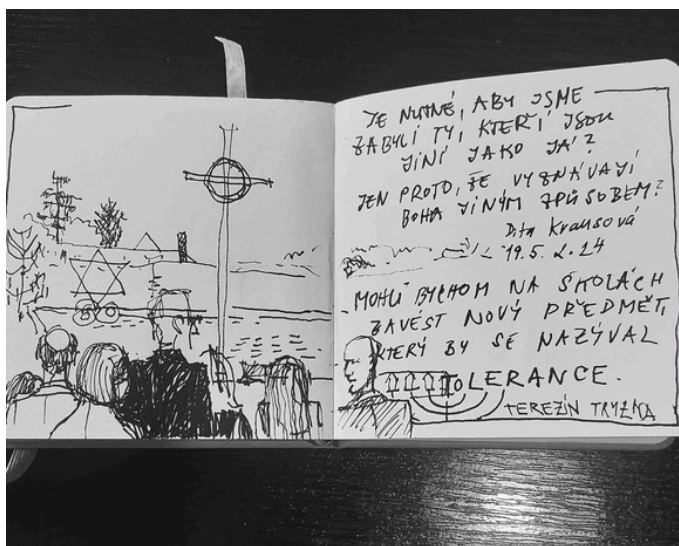 JE NUTNÉ, ABY JSME
ZABYLI TY, KTEŘÍ JSOU
JINÍ JAKO JÁ?
JEN PROTO, ŽE VYZNÁVAJÍ
BOHA JINÝM ZPŮSOBEM?
Dita Krausová
19.5.2024
MOHLI BYCHOM NA ŠKOLÁCH
ZAVÉST NOVÝ PŘEDMĚT,
KTERÝ BY SE NAZÝVAL
TOLERANCE.
TEREZÍN TRYZNA